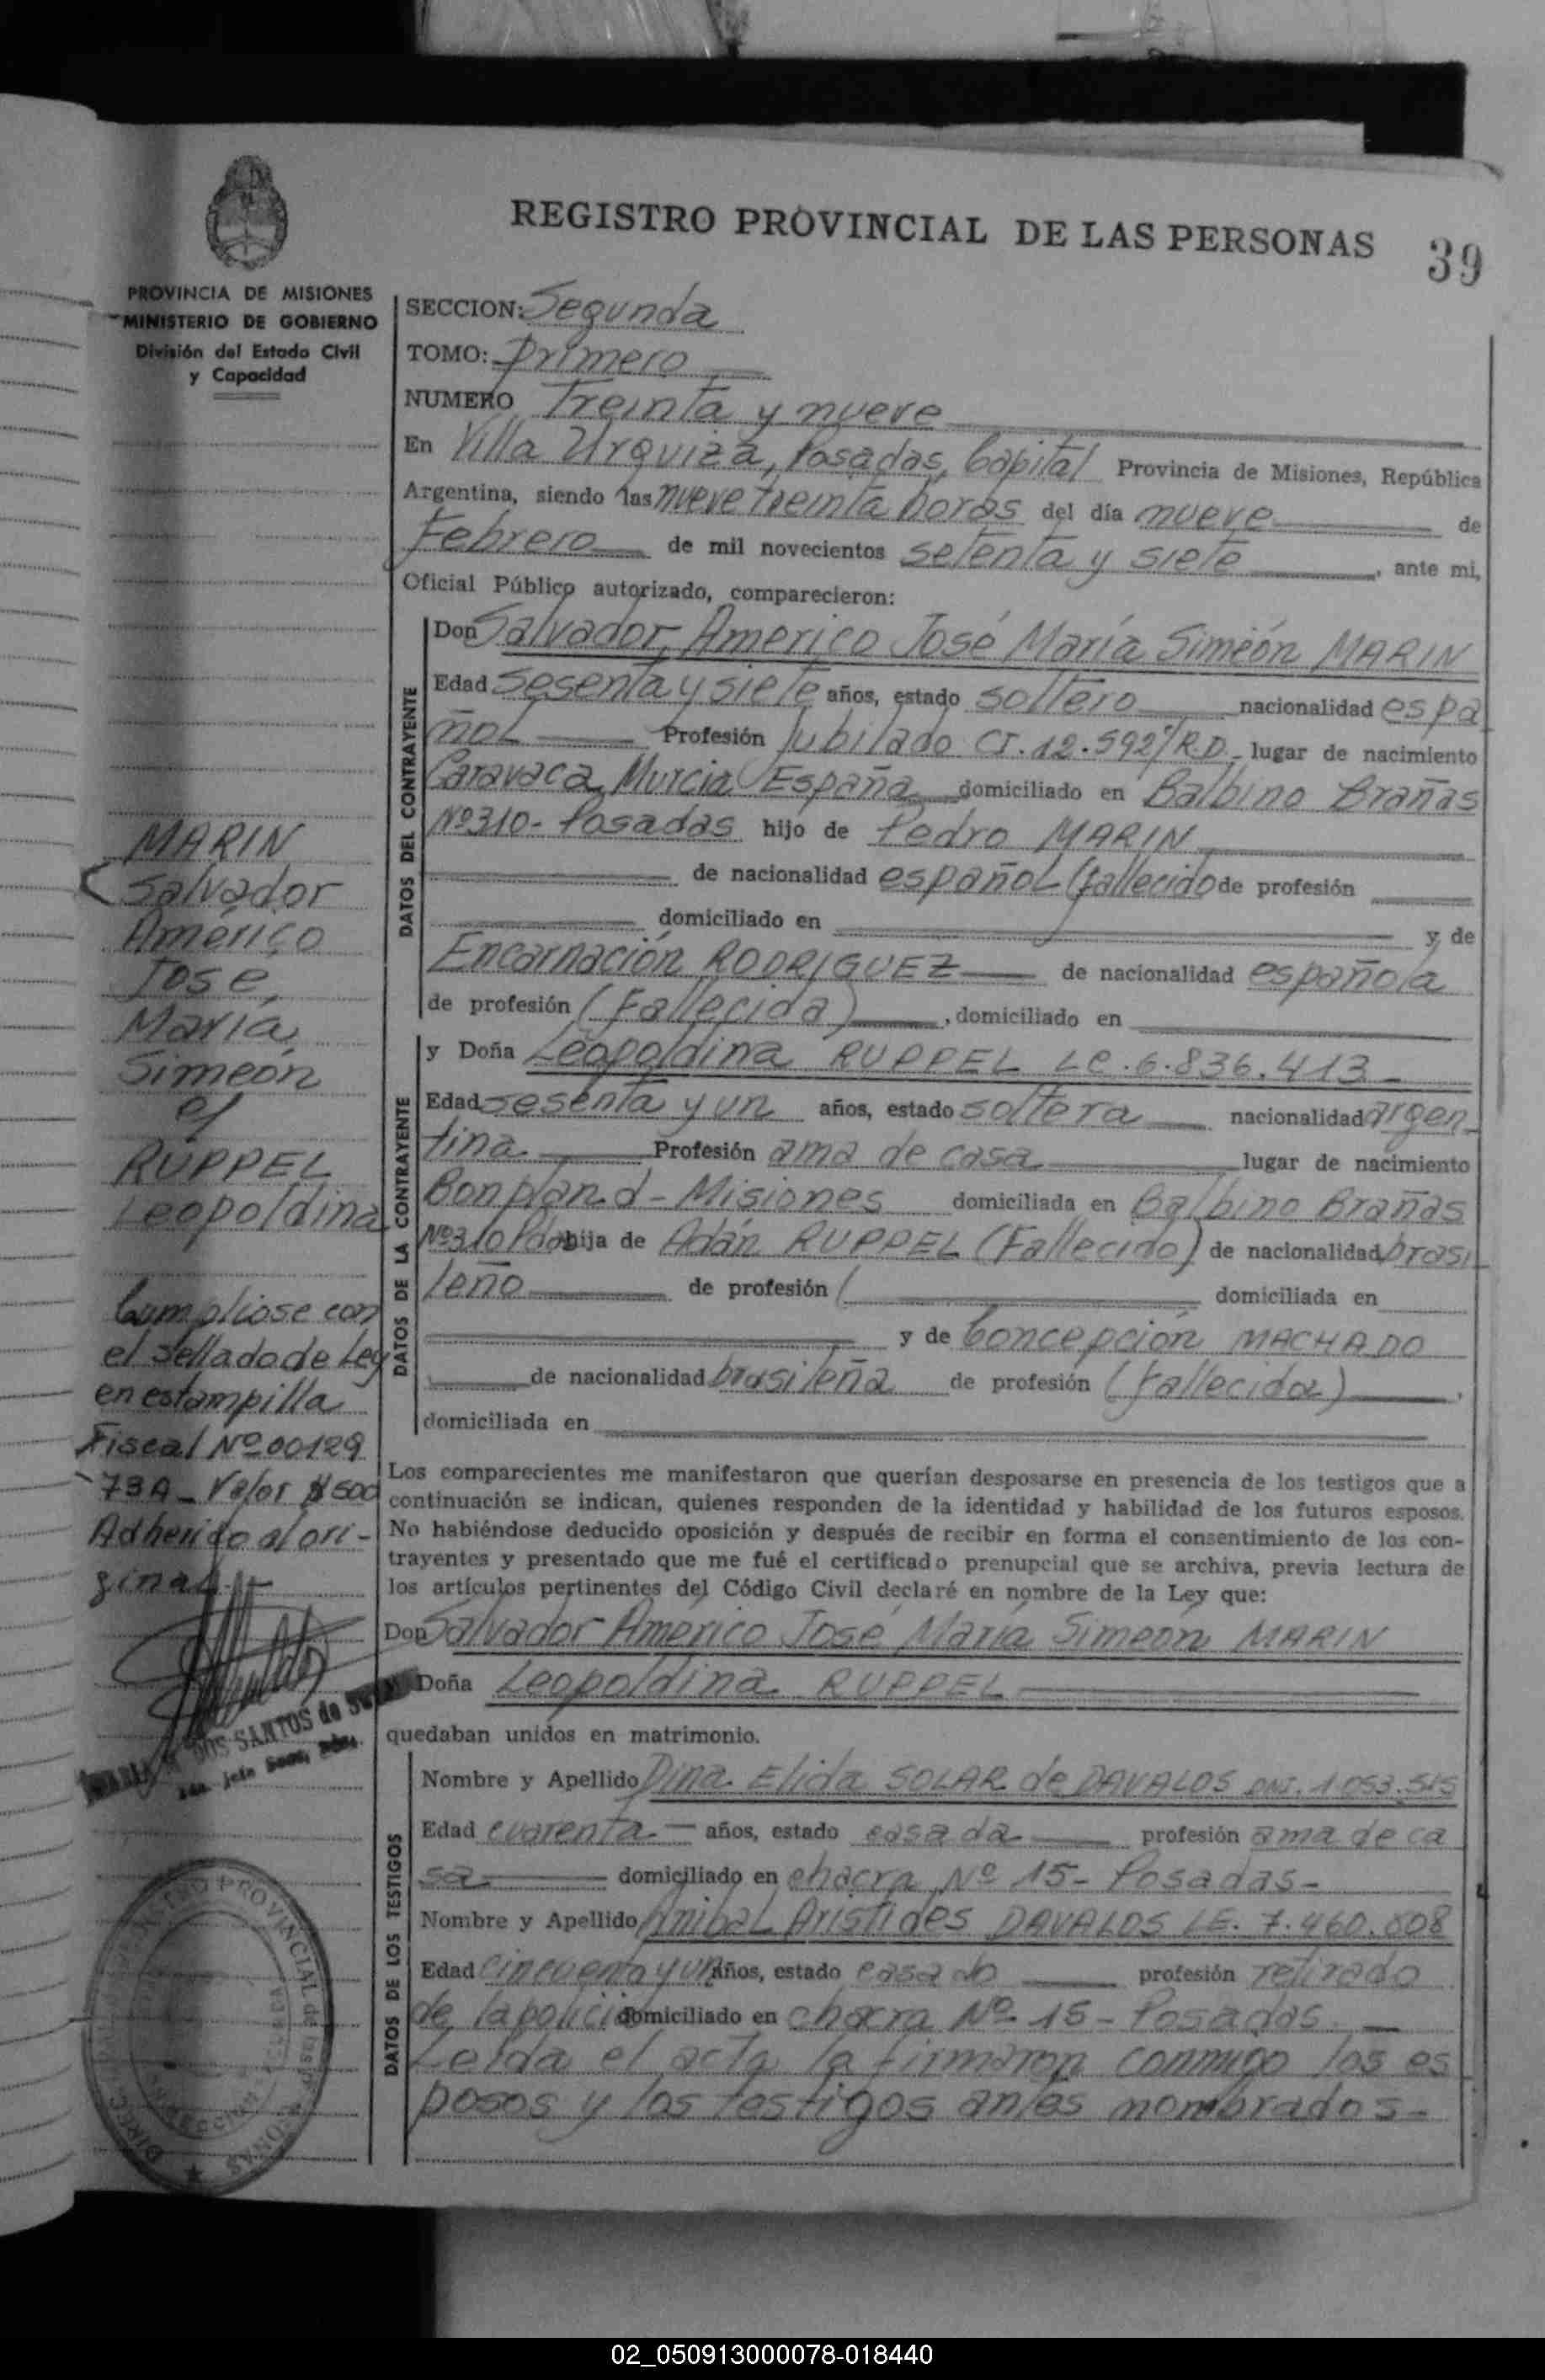 REGISTRO PROVINCIAL DE LAS PERSONAS
39
PROVINCIA DE MISIONES
MINISTERIO DE GOBIERNO
División del Estado Civil
y Capacidad
SECCION: Segunda
TOMO: Primero
NUMERO Treinta y nueve
En Villa Urquiza, Posadas, Capital Provincia de Misiones, República
Argentina, siendo las nueve treinta horas del día nueve de
Febrero de mil novecientos setenta y siete, ante mi,
Oficial Público autorizado, comparecieron:
DATOS DEL CONTRAYENTE
Don Salvador, Americo José María Simeón MARIN
Edad Sesenta y siete años, estado soltero nacionalidad espa
ñol Profesión Jubilado CI. 12.592 R.D. lugar de nacimiento
Caravaca, Murcia España domiciliado en Balbino Brañas
Nº 310 - Posadas hijo de Pedro MARIN
de nacionalidad español (fallecido de profesión
domiciliado en y de
Encarnación RODRIGUEZ de nacionalidad española
de profesión (Fallecida), domiciliado en
DATOS DE LA CONTRAYENTE
y Doña Leopoldina RUPPEL LC. 6.836.413
Edad sesenta y un años, estado soltera nacionalidad argen
tina Profesión ama de casa lugar de nacimiento
Bonpland - Misiones domiciliada en Balbino Brañas
Nº 310 Pdas hija de Adán RUPPEL (Fallecido) de nacionalidad brasi
leño de profesión ( domiciliada en
y de Concepción MACHADO
de nacionalidad brasileña de profesión (fallecida),
domiciliada en
Los comparecientes me manifestaron que querían desposarse en presencia de los testigos que a
continuación se indican, quienes responden de la identidad y habilidad de los futuros esposos.
No habiéndose deducido oposición y después de recibir en forma el consentimiento de los con-
trayentes y presentado que me fué el certificado prenupcial que se archiva, previa lectura de
los artículos pertinentes del Código Civil declaré en nombre de la Ley que:
Don Salvador Americo José María Simeón MARIN
Doña Leopoldina RUPPEL
quedaban unidos en matrimonio.
DATOS DE LOS TESTIGOS
Nombre y Apellido Dina Elida SOLAR de DAVALOS DNI. 1.053.515
Edad cuarenta años, estado casada profesión ama de ca
sa domiciliado en chacra Nº 15 - Posadas -
Nombre y Apellido Anibal Aristides DAVALOS LE. 7.460.808
Edad cincuenta y un años, estado casado profesión retirado
de la policia domiciliado en chacra Nº 15 - Posadas.
Leída el acta la firmaron conmigo los es
posos y los testigos antes nombrados -
MARIN
Salvador
Américo
Jose
María
Simeón
c/
RUPPEL
Leopoldina
Cumpliose con
el sellado de Ley
en estampilla
Fiscal Nº 00129
73A - Valor $ 500
Adherido al ori-
ginal.
DOS SANTOS de
REGISTRO PROVINCIAL de las PERSONAS
02_050913000078-018440